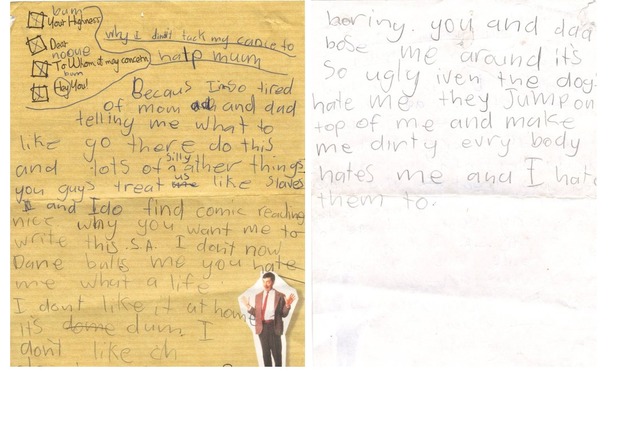 bum
Your Highness
Dear
noque
To Whom it may concern
bum
Hey You!
why I didn't tack my cance to
halp mum
Becaus Imso tired
of mom and and dad
telling me what to
like go there do this
silly
and lots of ather things
you guys treat us like slaves
and I do find comic reading
nice why you want me to
write this .S.A. I don't now
Dane bulls me you hate
me what a life
I dont like it at home
it's dome dum I
don't like ch
boring. you and dad
bose me around it's
so ugly iven the dogs
hate me they Jump on
top of me and make
me dirty evry body
hates me and I hate
them to.